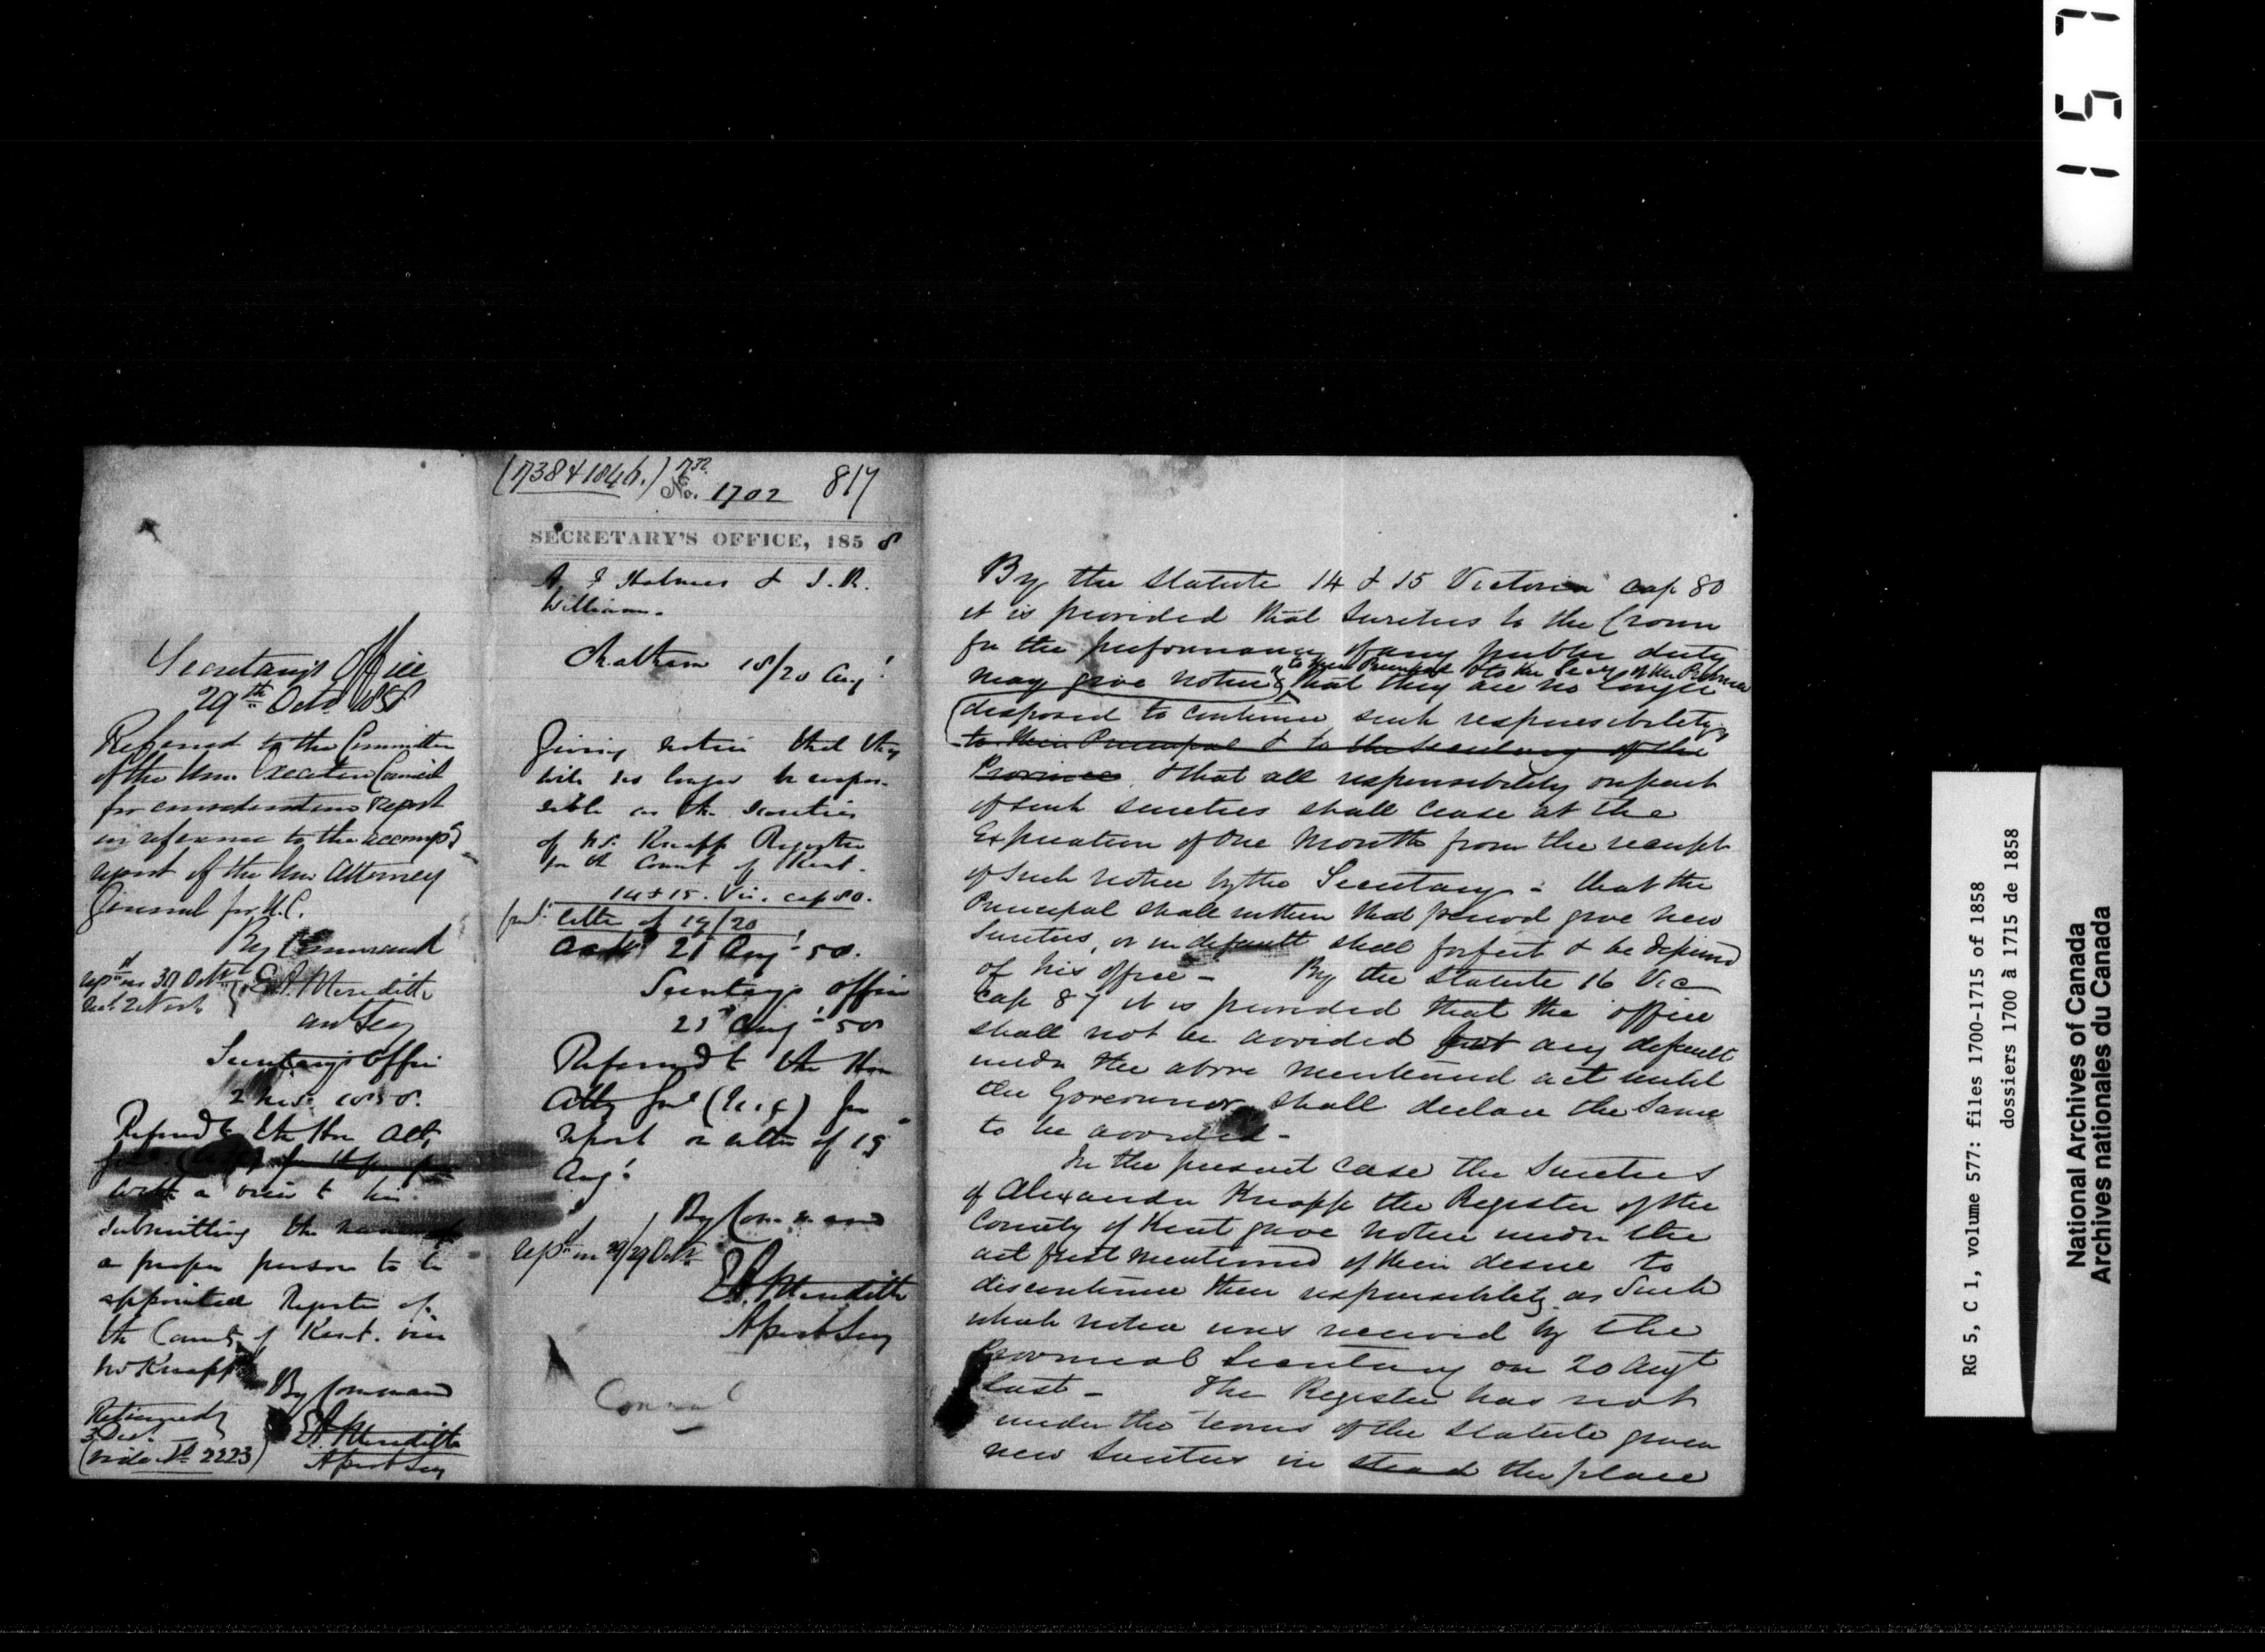 Secretary's Office
29th Octr 1858
Referred to the Committee
of the Hon. Executive Council
for consideration & Report
in reference to the accompg
report of the Hon. Attorney
General for U.C.
By Command
E.A. Meredith
Asst Secy
Secretary's Office
2 Nov. 1858.
Referred to the Hon Atty
with a view to his
submitting the name of
a proper person to be
appointed Register of
the County of Kent. vice
Mr Knapp
By Command
E.A. Meredith
Asst Secy
Returned
3 Dec.
(vide No 2223)
No. 1702 817
SECRETARY'S OFFICE, 1858
A. J Holmes & J. R.
Williams.
Chatham 18/20 Augt
Giving notice that they
will no longer be respon-
sible as the securities
of Mr. Knapp Register
for the County of Kent.
14 & 15. Vic. cap 80.
letter of 19/20
Ackd 21 Augt 58.
Secretary's Office
21 Augt 58
Referred to the Hon
Atty Genl (U.C) for
report on letter of 19
Augt
By Command
Repd on 29/29 Octr
E.A. Meredith
Asst Secy
Council
By the Statute 14 & 15 Victoria cap 80
it is provided that Sureties to the Crown
for the performance of any public duty
to their Principal & to the Secy of the Province
may give notice that they are no longer
disposed to continue such responsibility
to their Principal & to the Secretary of the
Province & that all responsibility on part
of such sureties shall cease at the
Expiration of One Month from the receipt
of such notice by the Secretary - that the
Principal shall within that period give new
Sureties, or in default shall forfeit & be deprived
of his office - By the Statute 16 Vic
cap 87 it is provided that the office
shall not be avoided for any default
under the above mentioned act until
the Governor shall declare the same
to be avoided -
In the present case the Sureties
of Alexander Knapp the Register of the
County of Kent gave notice under the
act first mentioned of their desire to
discontinue their responsibility as such
which notice was received by the
Provincial Secretary on 20 Augt
last - The Register has not
under the terms of the Statute given
new Sureties in stead the place
157
RG 5, C 1, volume 577: files 1700-1715 of 1858
dossiers 1700 à 1715 de 1858
National Archives of Canada
Archives nationales du Canada